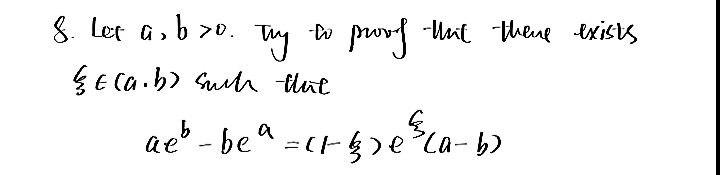 8. Let a, b >0. Try to proof that there exists
ξ ∈ (a.b) such that
ae^b - be^a = (1-ξ)e^ξ(a-b)